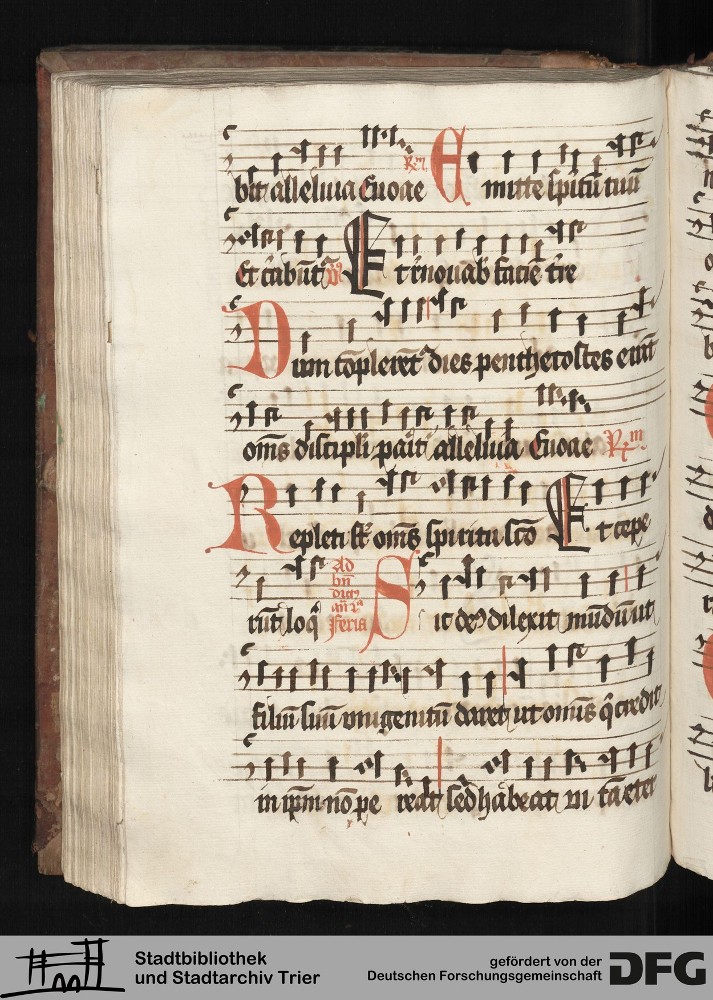 bit alleluia Euoae Rm Emitte spitū tuū
Et crabūt V Et rnouab faciē tre
Dum cōpleret dies penthecostes eiūt
om̄s discipli pait alleluia Euoae Rm
Repleti st om̄s spiritu sc̄o Et cepe
rūt loq̄ Ad bn̄ feria Sic de dilexit mūdū ut
filiū suū unigenitū daret ut omīs q̄ credit
in ipm no pe reat sed habeat vi tā eter
Stadtbibliothek
und Stadtarchiv Trier
gefördert von der
Deutschen Forschungsgemeinschaft
DFG